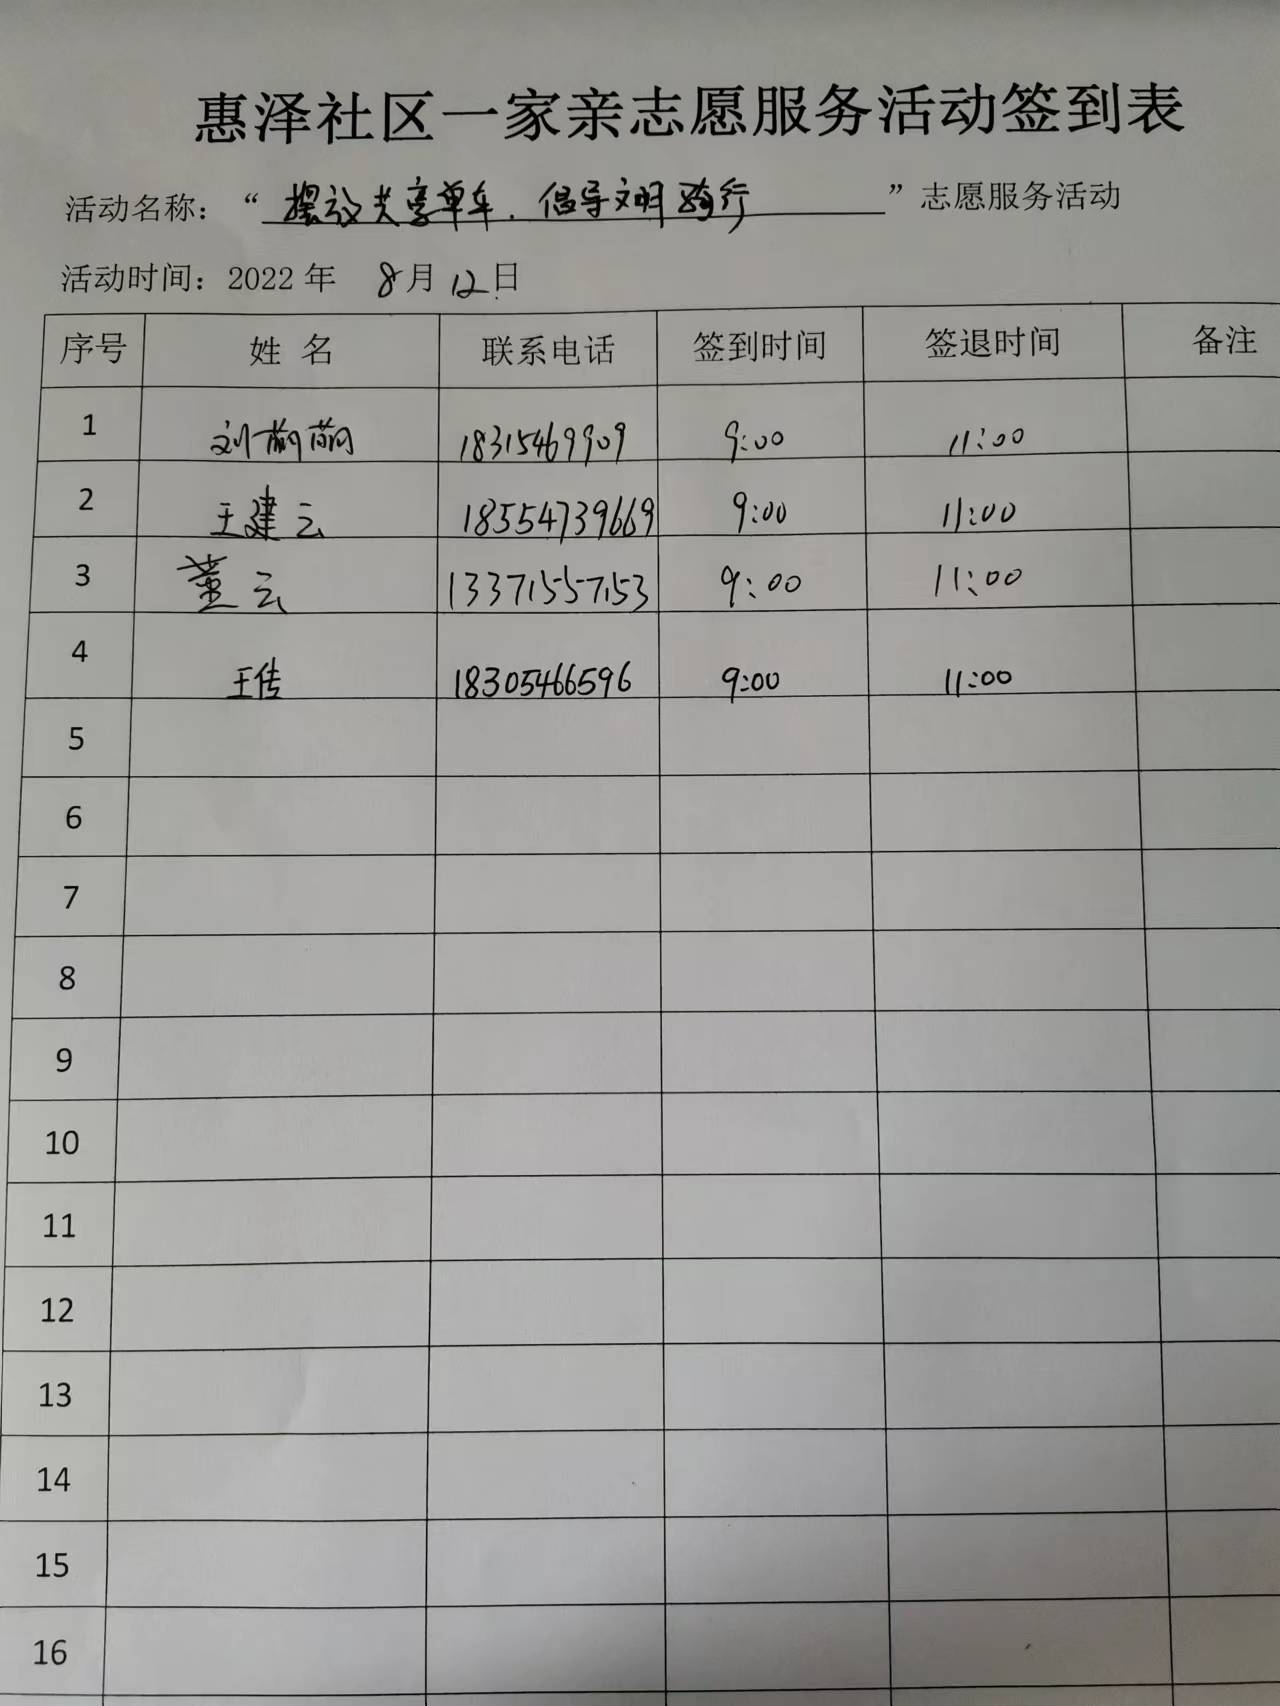 惠泽社区一家亲志愿服务活动签到表
活动名称：“摆放共享单车，倡导文明骑行”志愿服务活动
活动时间：2022年 8月12日
序号 姓名 联系电话 签到时间 签退时间 备注
1 刘萌萌 18315469909 9:00 11:00
2 王建云 18554739669 9:00 11:00
3 董云 13371557153 9:00 11:00
4 王传 18305466596 9:00 11:00
5
6
7
8
9
10
11
12
13
14
15
16